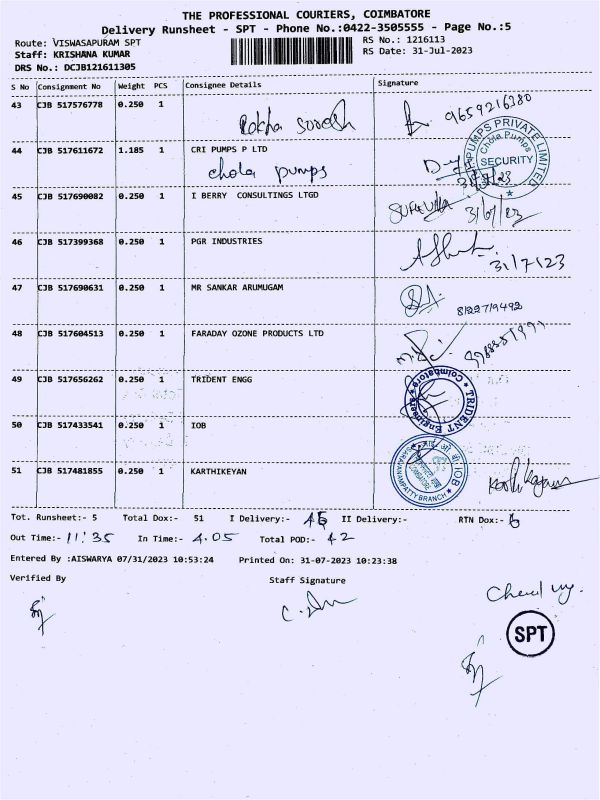 THE PROFESSIONAL COURIERS, COIMBATORE
Delivery Runsheet - SPT - Phone No.:0422-3505555 - Page No.:5
Route: VISWASAPURAM SPT
RS No.: 1216113
Staff: KRISHANA KUMAR
RS Date: 31-Jul-2023
DRS No.: DCJB121611305
S No Consignment No Weight PCS Consignee Details Signature
43 CJB 517576778 0.250 1 9659216380
44 CJB 517611672 1.185 1 CRI PUMPS P LTD
chola pumps
PUMPS PRIVATE LIMITED
Chola Pumps
SECURITY
45 CJB 517690082 0.250 1 I BERRY CONSULTINGS LTGD
46 CJB 517399368 0.250 1 PGR INDUSTRIES
31/7/23
47 CJB 517690631 0.250 1 MR SANKAR ARUMUGAM
48 CJB 517604513 0.250 1 FARADAY OZONE PRODUCTS LTD
49 CJB 517656262 0.250 1 TRIDENT ENGG
TRIDENT Engineers Coimbatore
50 CJB 517433541 0.250 1 IOB
IOB
BRANCH
51 CJB 517481855 0.250 1 KARTHIKEYAN
Tot. Runsheet:- 5 Total Dox:- 51 I Delivery:- II Delivery:- RTN Dox:-
Out Time:- 11:35 In Time:- 4.05 Total POD:- 42
Entered By :AISWARYA 07/31/2023 10:53:24 Printed On: 31-07-2023 10:23:38
Verified By Staff Signature
SPT